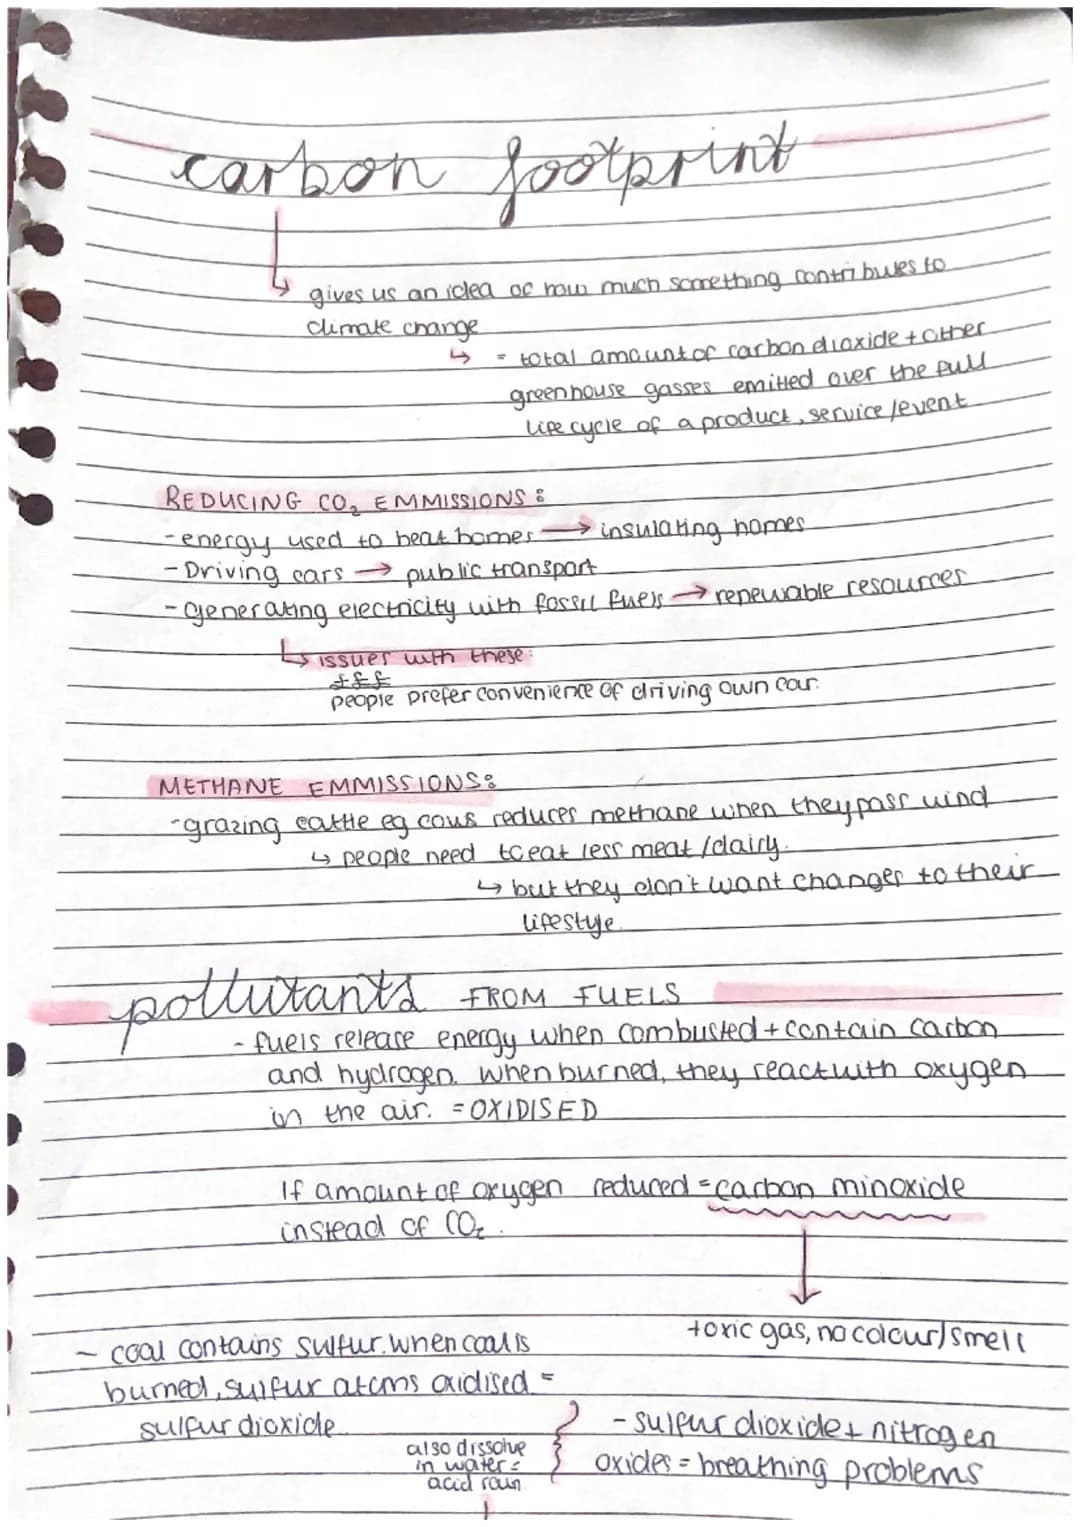 carbon footprint
↳ gives us an idea of how much something contributes to
climate change
↳ = total amount of carbon dioxide + other
greenhouse gasses emitted over the full
life cycle of a product, service/event
REDUCING CO₂ EMMISSIONS:
- energy used to heat homes → insulating homes
- Driving cars → public transport
- generating electricity with fossil fuels → renewable resources
↳ issues with these:
£££
people prefer convenience of driving own car.
METHANE EMMISSIONS:
- grazing cattle eg cows reduces methane when they pass wind
↳ people need to eat less meat/dairy.
↳ but they don't want changes to their
lifestyle.
pollutants FROM FUELS
- fuels release energy when combusted + contain carbon
and hydrogen. When burned, they react with oxygen
in the air. = OXIDISED
If amount of oxygen reduced = carbon minoxide
instead of CO₂.
toxic gas, no colour/smell
- coal contains sulfur. when coal is
burned, sulfur atoms oxidised =
sulfur dioxide
- sulfur dioxide + nitrogen
oxides = breathing problems
also dissolve
in water =
acid rain